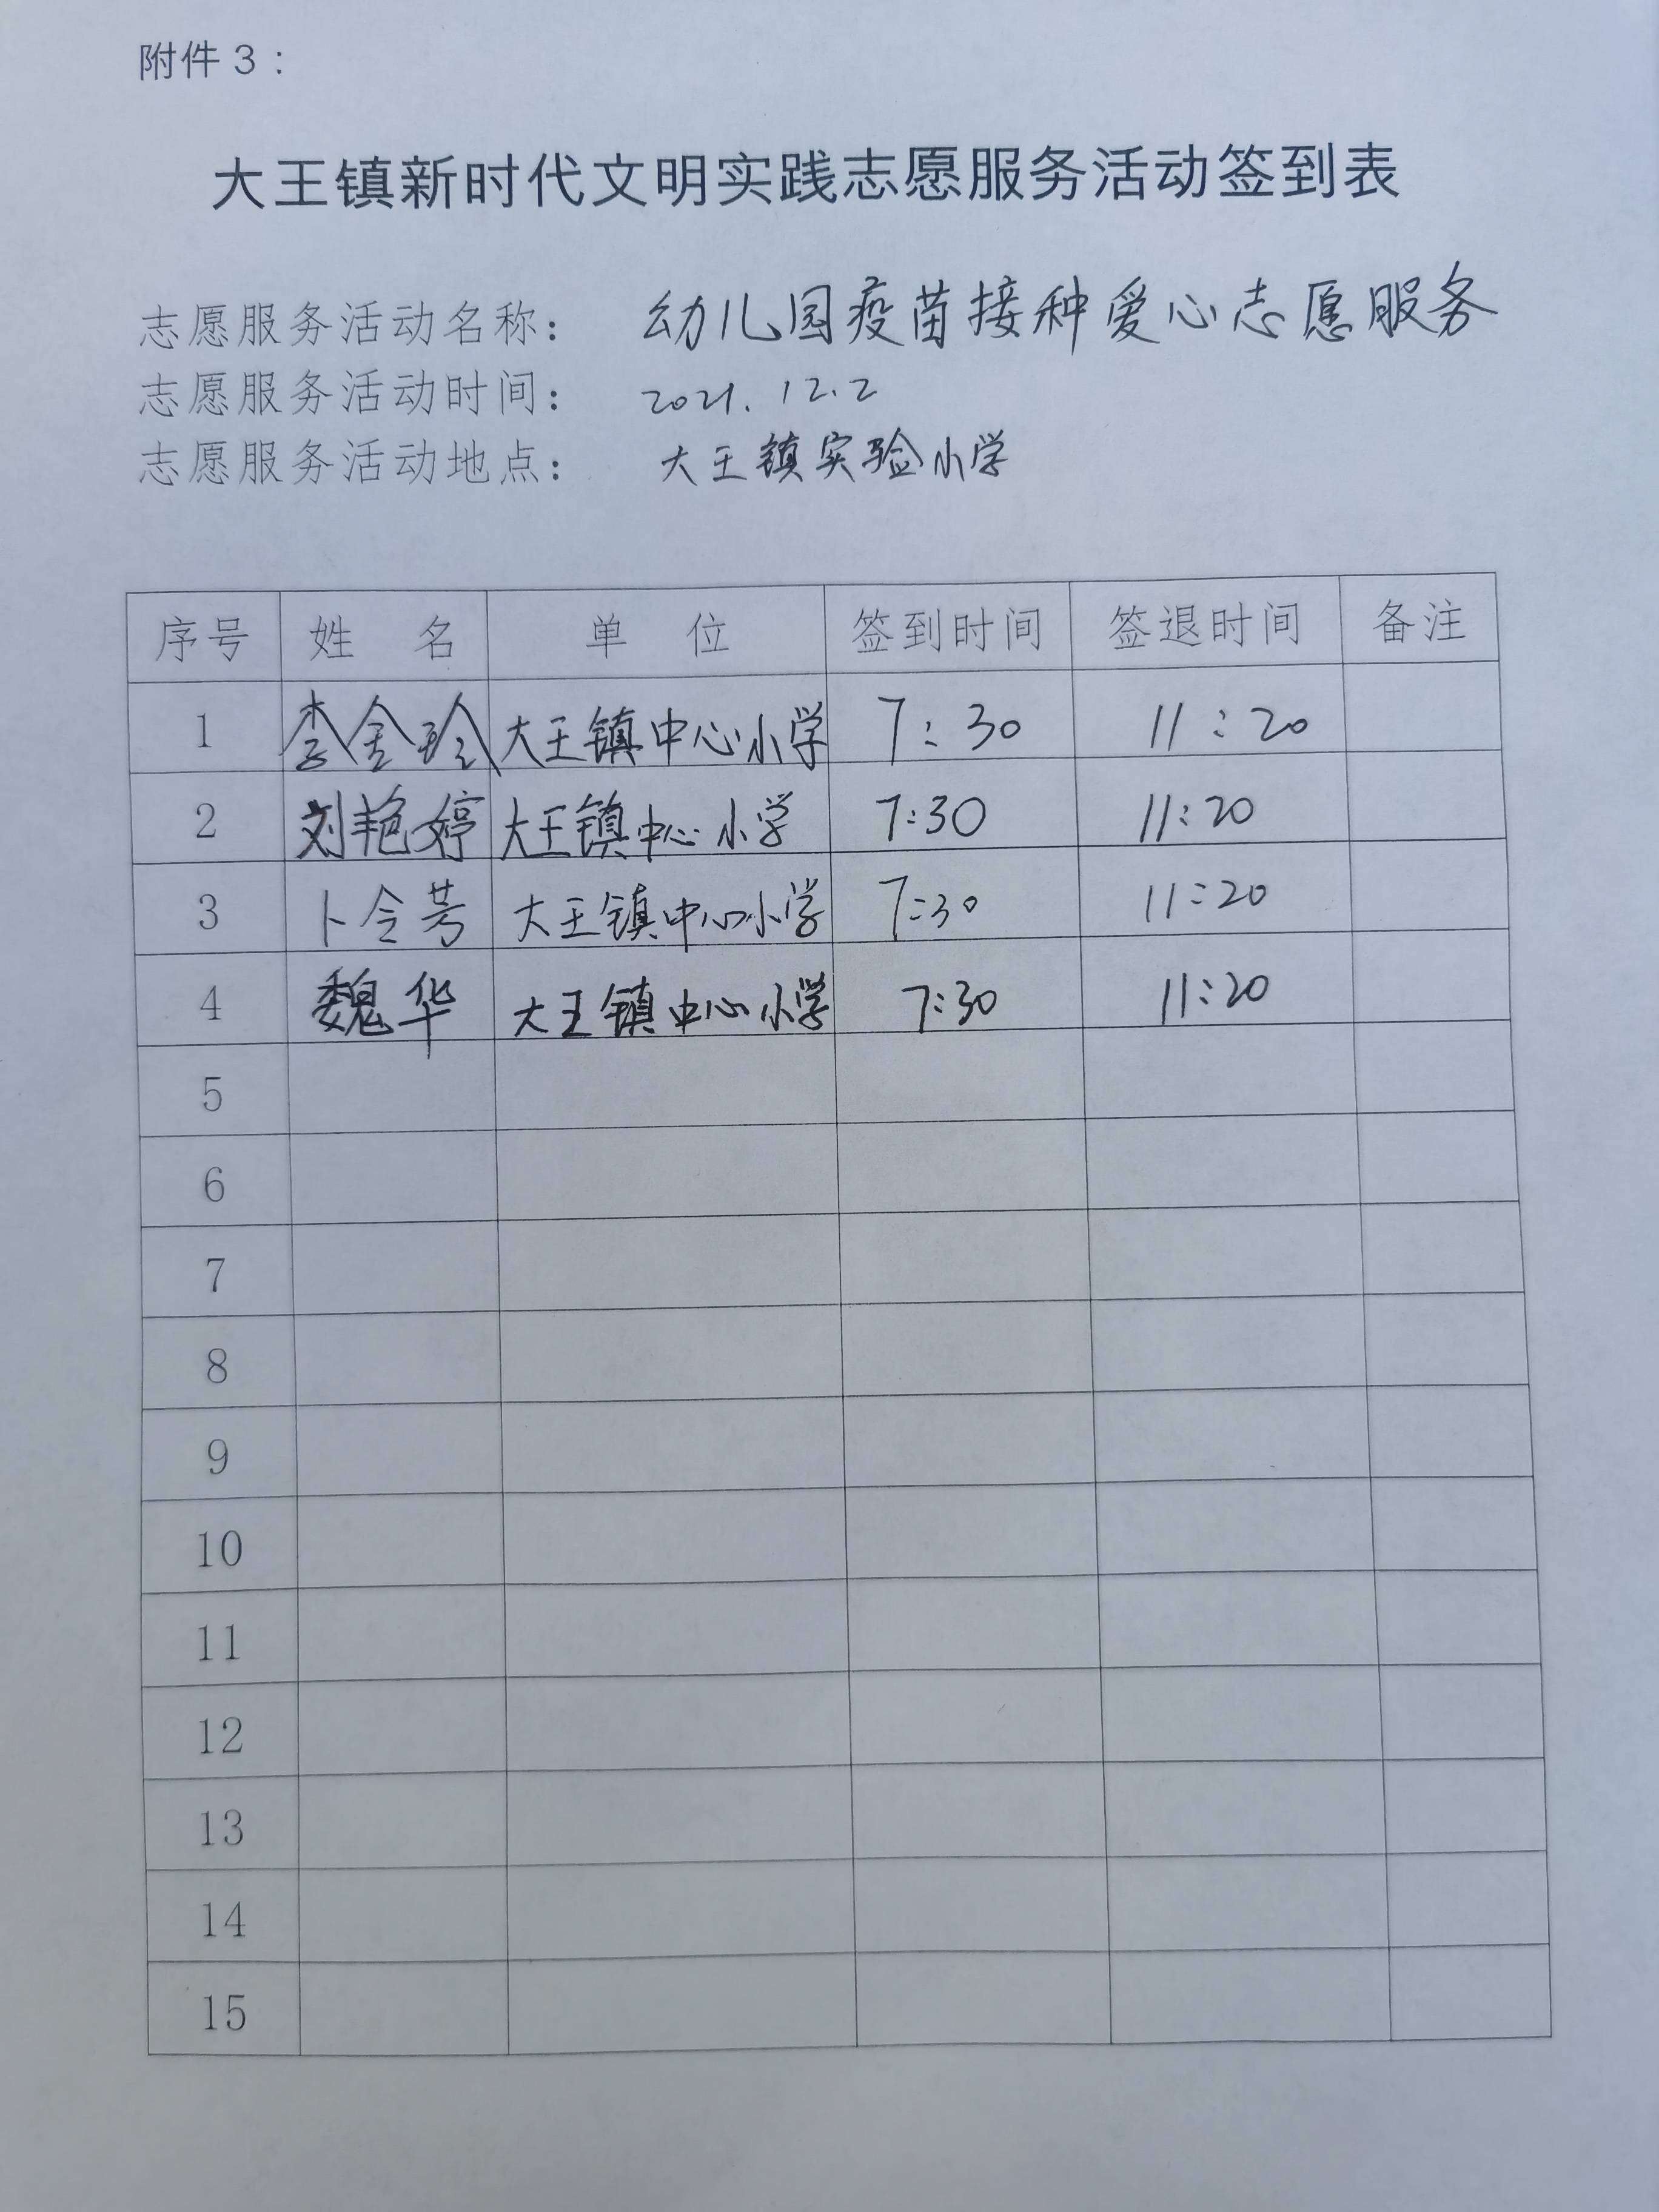 附件3：
大王镇新时代文明实践志愿服务活动签到表
志愿服务活动名称： 幼儿园疫苗接种爱心志愿服务
志愿服务活动时间： 2021.12.2
志愿服务活动地点： 大王镇实验小学
序号 姓 名 单 位 签到时间 签退时间 备注
1 李金玲 大王镇中心小学 7:30 11:20
2 刘艳婷 大王镇中心小学 7:30 11:20
3 卜令芳 大王镇中心小学 7:30 11:20
4 魏华 大王镇中心小学 7:30 11:20
5
6
7
8
9
10
11
12
13
14
15